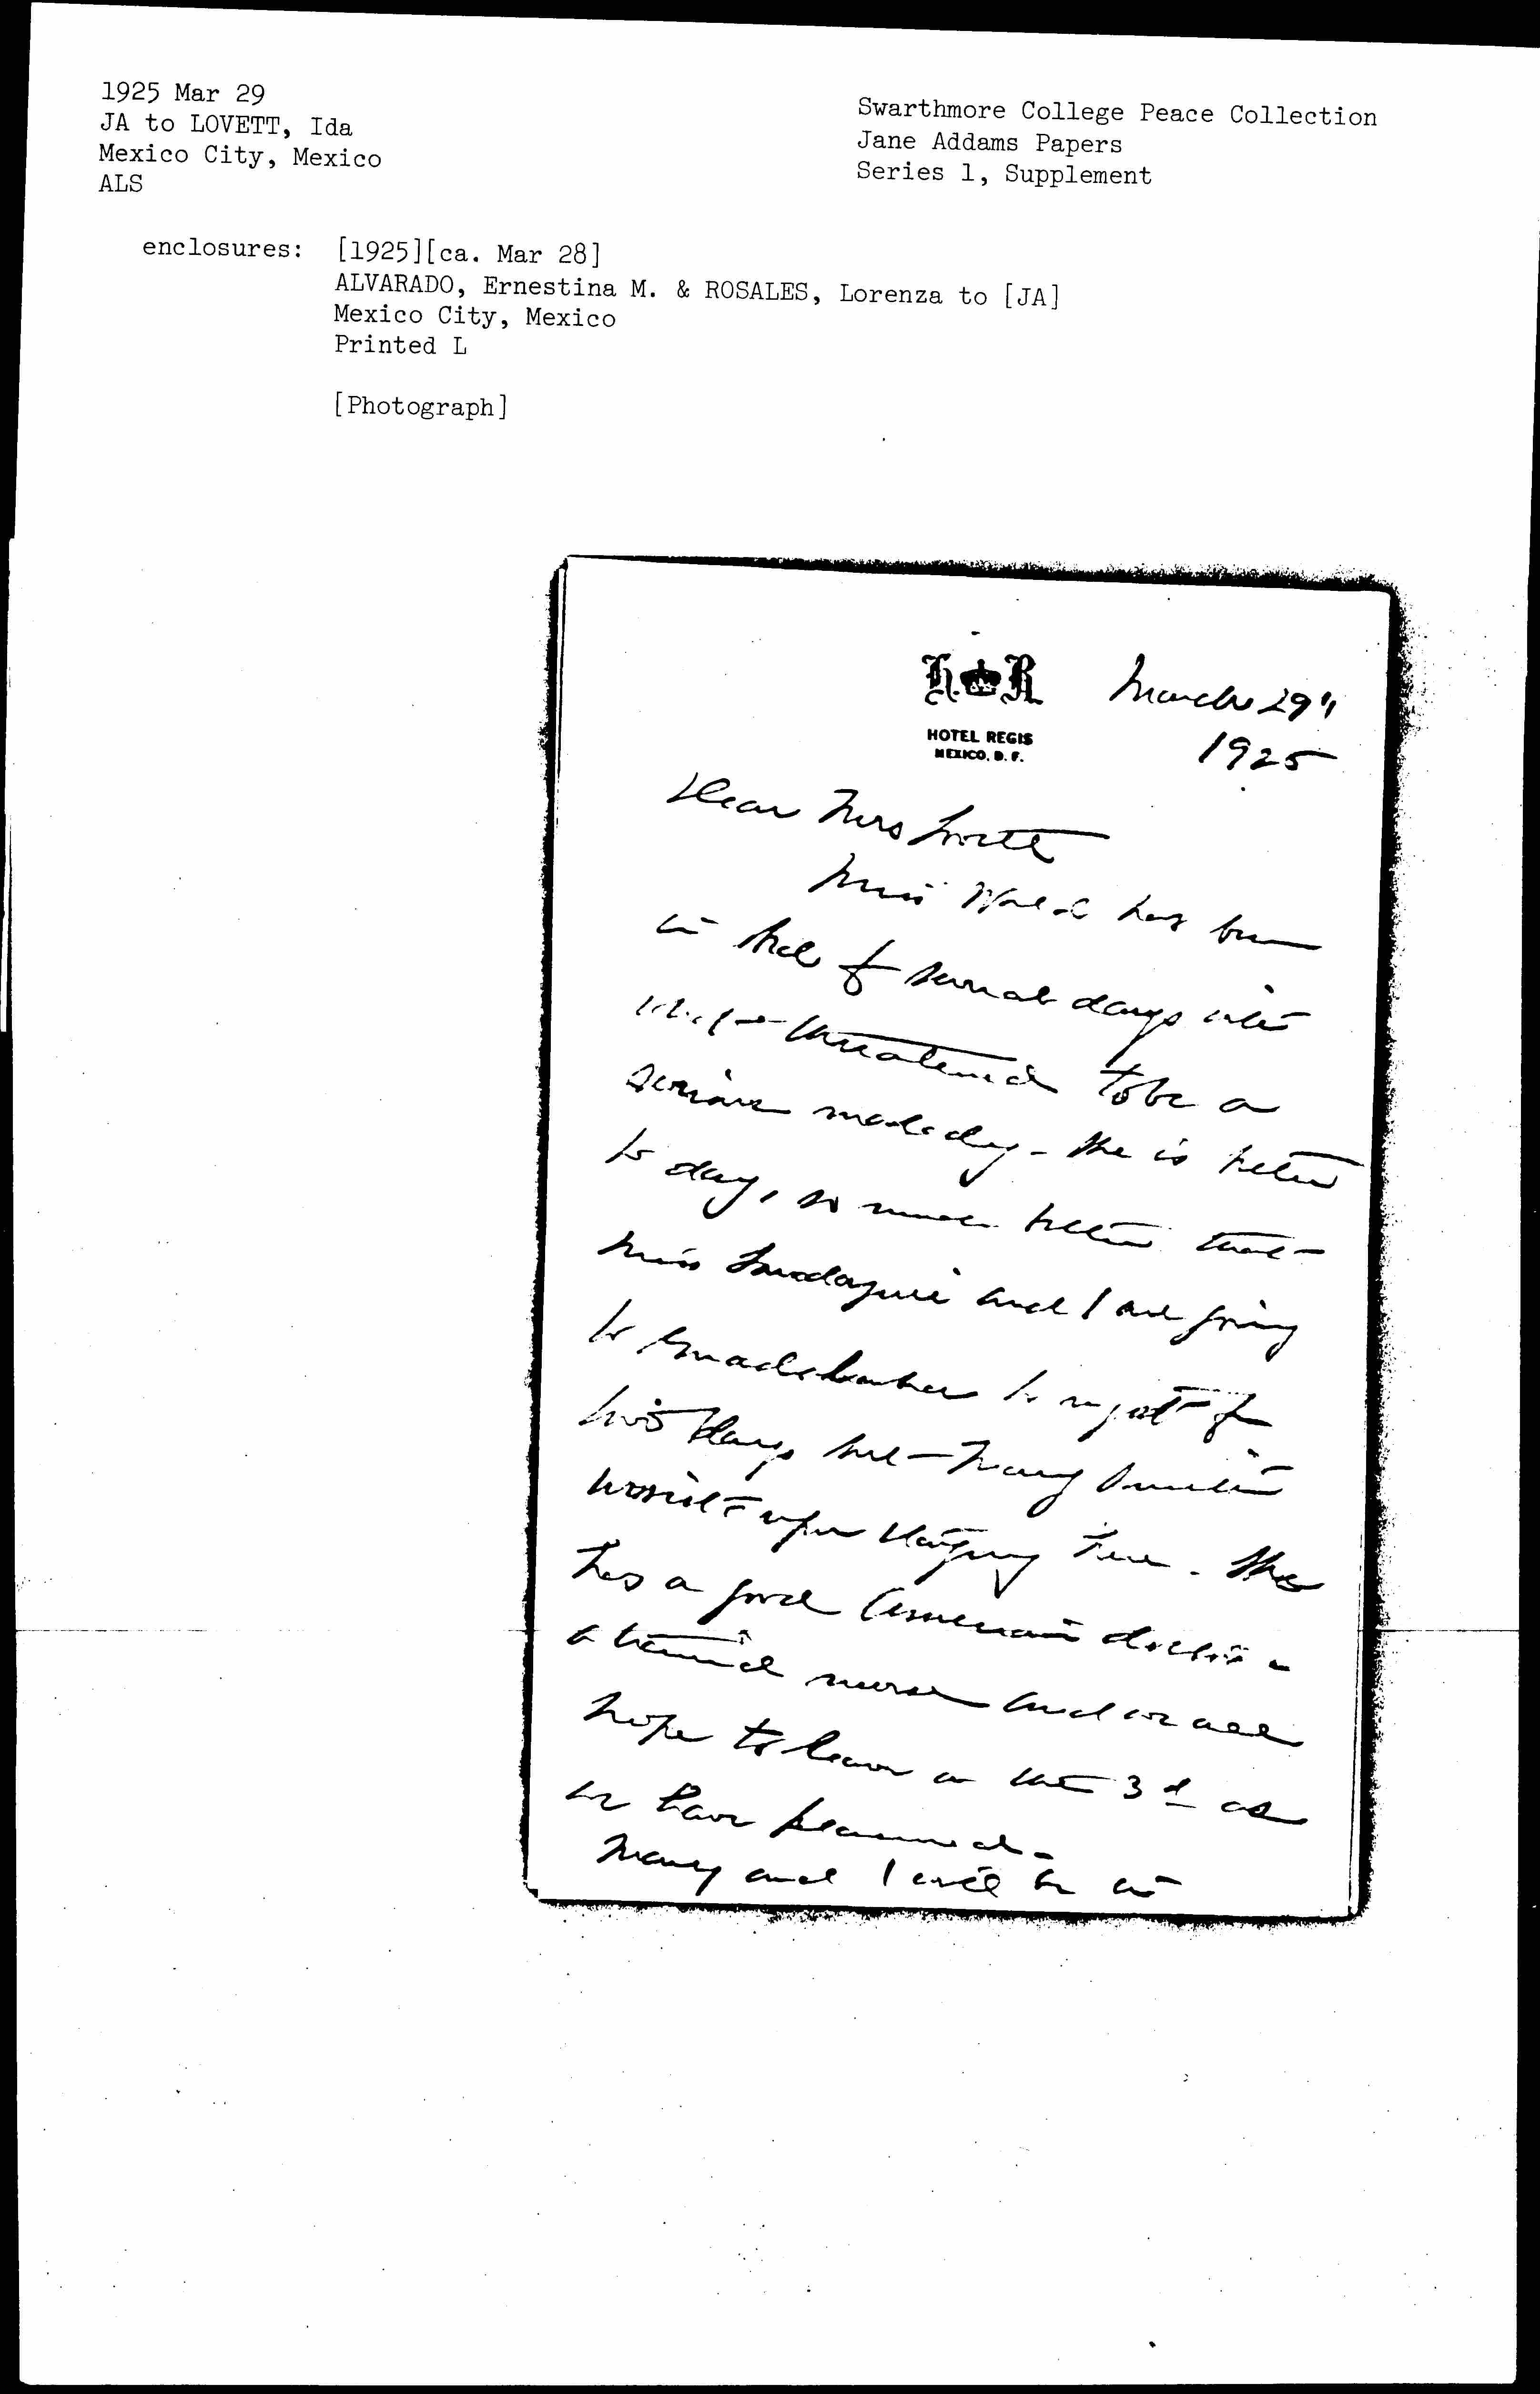 1925 Mar 29
JA to LOVETT, Ida
Mexico City, Mexico
ALS
Swarthmore College Peace Collection
Jane Addams Papers
Series 1, Supplement
enclosures: [1925][ca. Mar 28]
ALVARADO, Ernestina M. & ROSALES, Lorenza to [JA]
Mexico City, Mexico
Printed L
[Photograph]
H R
HOTEL REGIS
MEXICO, D. F.
March 29"
1925
Dear Mrs Lovett
Miss Wald has been
in bed for several days with
what threatened to be a
serious malady - She is better
to day, so much better that
Miss and I are going
to to night for
two days but Mary Smith
insists upon staying here. She
has a good American doctor &
a trained nurse and we all
hope to leave on the 3d as
we have planned -
Mary and I will be at